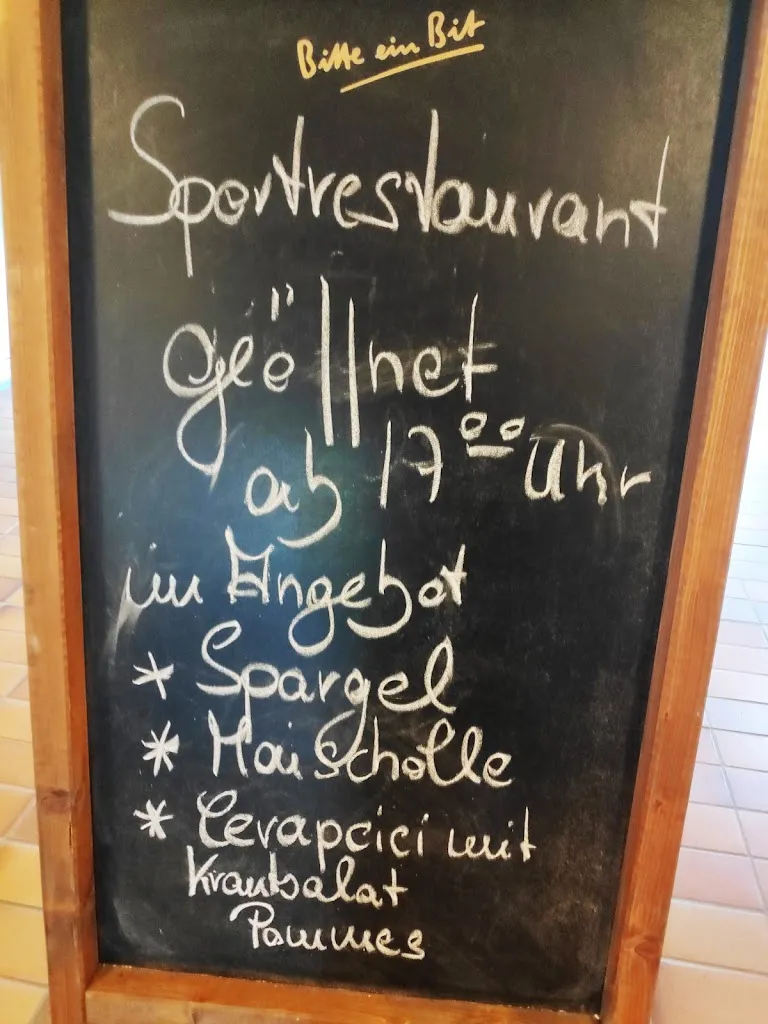 Bitte ein Bit
Sportrestaurant
geöffnet
ab 17°° Uhr
im Angebot
* Spargel
* Maischolle
* Cevapcici mit
Krautsalat
Pommes